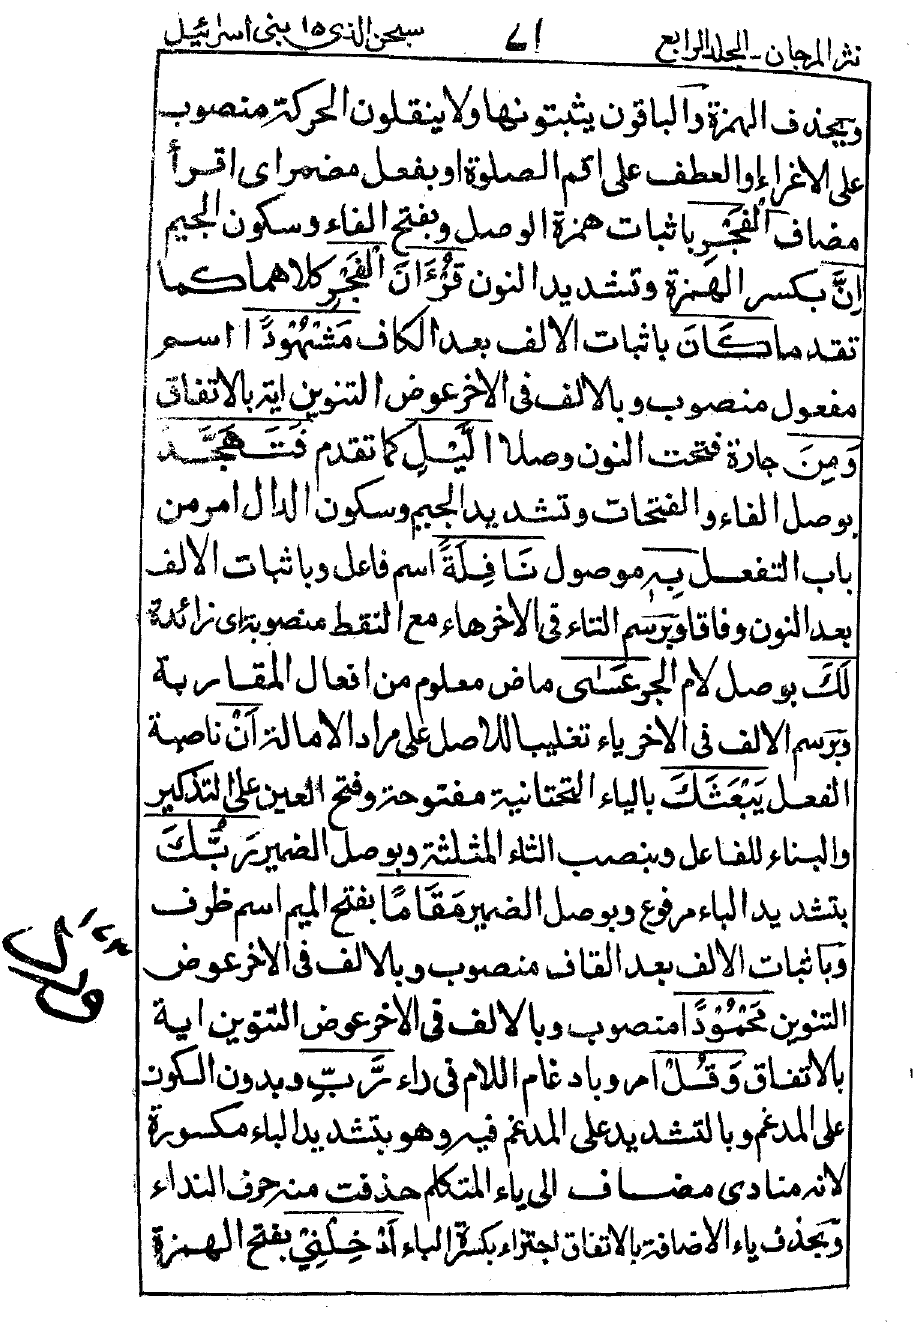 نثر المرجان ـ المجلد الرابع ٧١ سبحن الذى ١٥ بنى اسرائيل
ويحذف الهمزة والباقون يثبتونها ولا ينقلون الحركة منصوب
على الاغراء او العطف على اقم الصلوة او بفعل مضمر اى اقرأ
مضاف الْفَجْرِ باثبات همزة الوصل وبفتح الفاء وسكون الجيم
اِنَّ بكسر الهمزة وتشديد النون قُرْءَانَ الْفَجْرِ كلاهما كما
تقدما كَانَ باثبات الالف بعد الكاف مَشْهُوْدًا اسم
مفعول منصوب وبالالف فى الاخر عوض التنوين اية بالاتفاق
وَمِنَ جارة فتحت النون وصلا الَّيْلِ كما تقدم فَتَهَجَّدْ
بوصل الفاء والفتحات وتشديد الجيم وسكون الدال امر من
باب التفعل بِهٖ موصول نَافِلَةً اسم فاعل وباثبات الالف
بعد النون وفاقا ويرسم التاء فى الاخر هاء مع النقط منصوبة اى زائدة
لَكَ بوصل لام الجر عَسٰى ماض معلوم من افعال المقاربة
ويرسم الالف فى الاخر ياء تغليبا للاصل على مراد الامالة اَنْ ناصبة
الفعل يَبْعَثَكَ بالياء التحتانية مفتوحة وفتح العين على التذكير
والبناء للفاعل وبنصب الثاء المثلثة وبوصل الضمير رَبُّكَ
بتشديد الباء مرفوع وبوصل الضمير مَقَامًا بفتح الميم اسم ظرف
وباثبات الالف بعد القاف منصوب وبالالف فى الاخر عوض
التنوين مَحْمُوْدًا منصوب وبالالف فى الاخر عوض التنوين اية
بالاتفاق وَقُلْ امر وبادغام اللام فى راء رَّبِّ وبدون السكون
على المدغم وبالتشديد على المدغم فيه وهو بتشديد الباء مكسورة
لانه منادى مضاف الى ياء المتكلم حذفت منه حرف النداء
ويحذف ياء الاضافة بالاتفاق اجتزاء بكسرة الباء اَدْخِلْنِيْ بفتح الهمزة